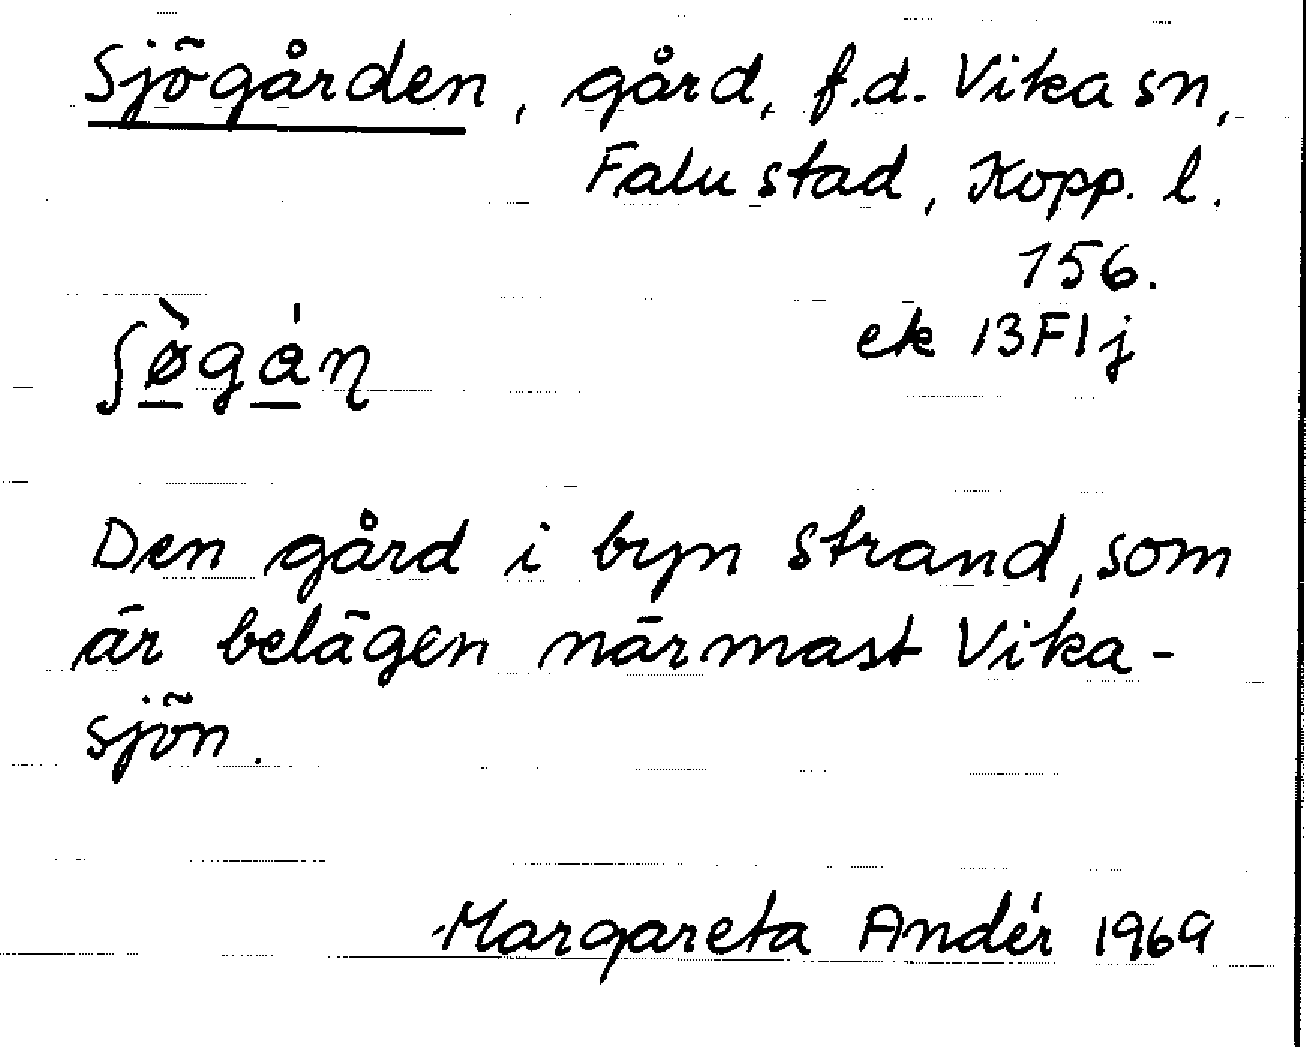 Sjögården, gård, f.d. Vika sn,
Falu stad, Kopp. l.
156.
ek 13F1j
ʃø̀gáŋ
Den gård i byn Strand, som
är belägen närmast Vika-
sjön.
Margareta Andér 1969